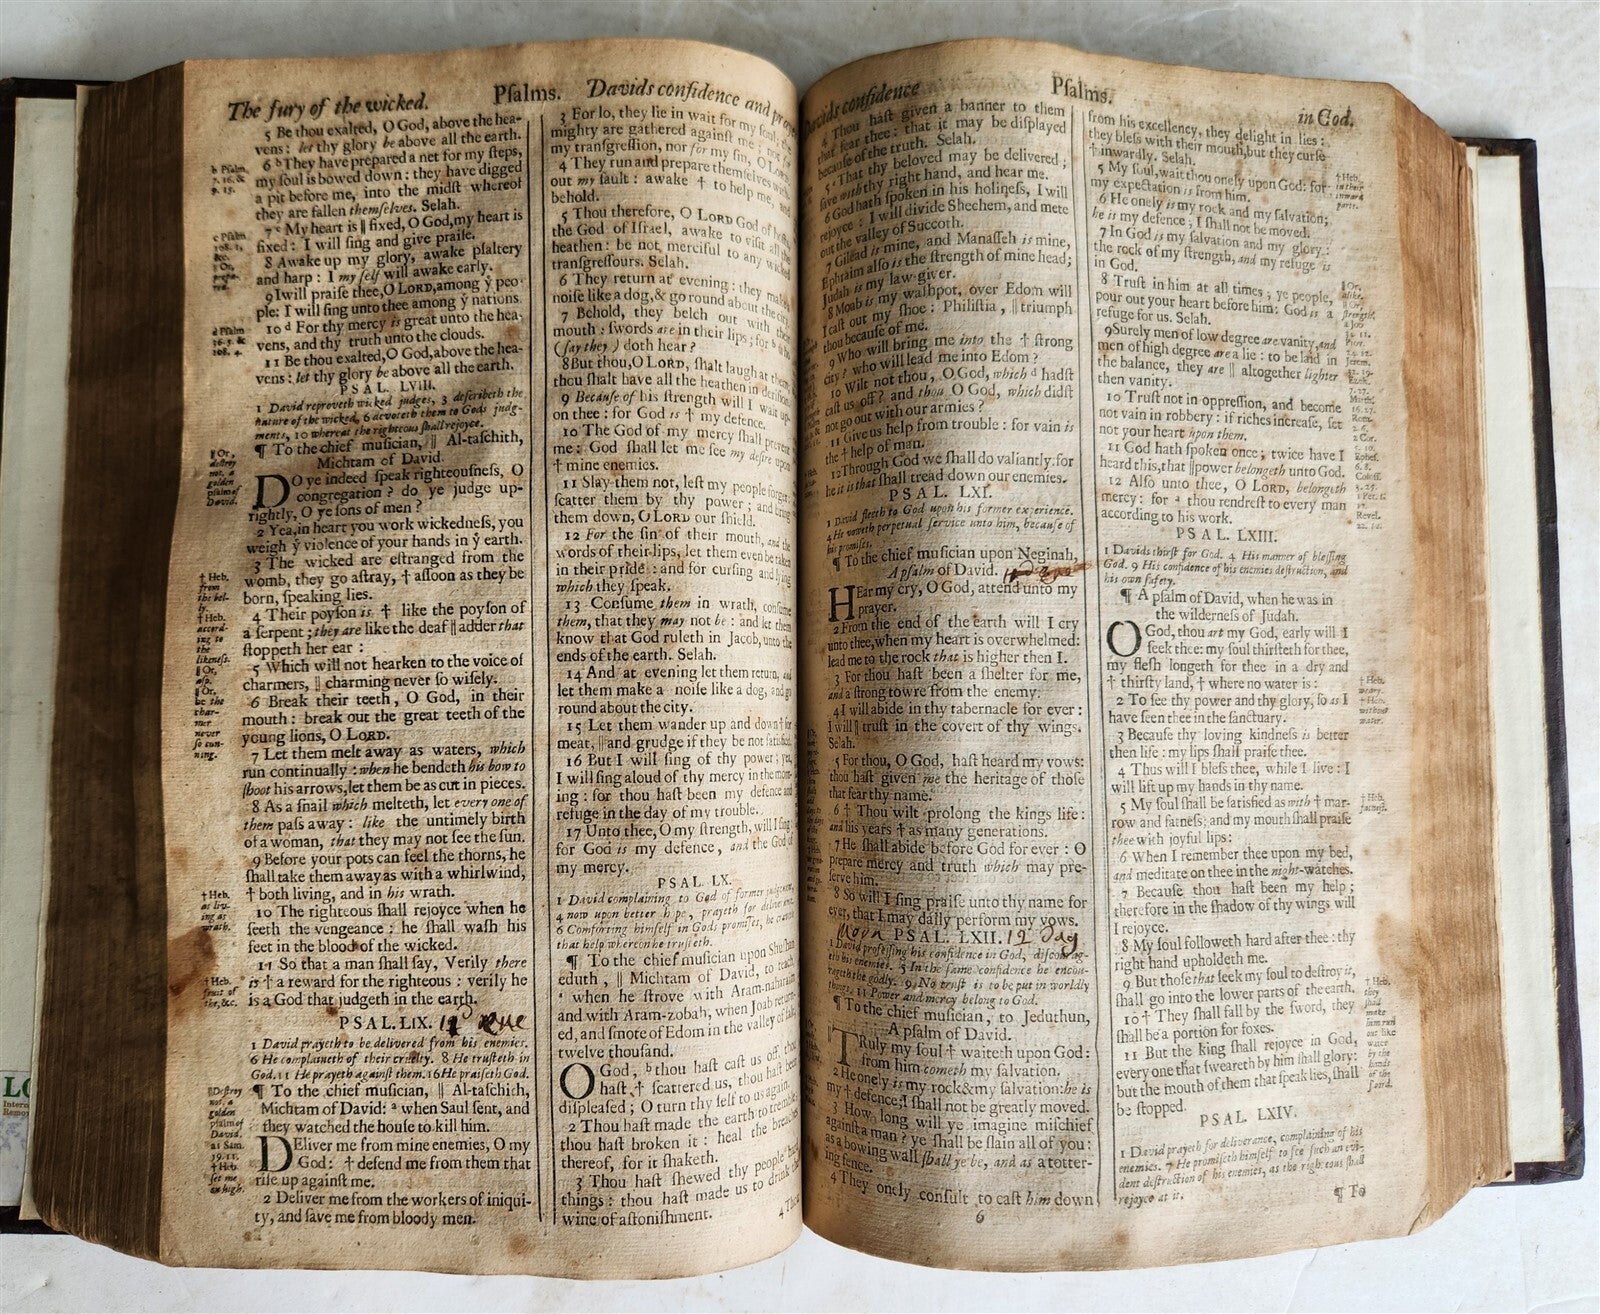 The fury of the wicked.
Pſalms.
Davids confidence and
5 Be thou exalted, O God, above the hea-
vens: let thy glory be above all the earth.
6 ᵇ They have prepared a net for my ſteps,
my ſoul is bowed down: they have digged
a pit before me, into the midſt whereof
they are fallen themſelves. Selah.
7 ᶜ My heart is ‖ fixed, O God, my heart is
fixed: I will ſing and give praiſe.
8 Awake up my glory, awake pſaltery
and harp: I my ſelf will awake early.
9 I will praiſe thee, O LORD, among ẏ peo-
ple: I will ſing unto thee among ẏ nations.
10 ᵈ For thy mercy is great unto the hea-
vens, and thy truth unto the clouds.
11 Be thou exalted, O God, above the hea-
vens: let thy glory be above all the earth.
PSAL. LVIII.
1 David reproveth wicked judges, 3 deſcribeth the
nature of the wicked, 6 devoteth them to Gods judg-
ments, 10 whereat the righteous ſhall rejoyce.
¶ To the chief muſician, ‖ Al-taſchith,
Michtam of David.
DO ye indeed ſpeak righteouſneſs, O
congregation? do ye judge up-
rightly, O ye ſons of men?
2 Yea, in heart you work wickedneſs, you
weigh ẏ violence of your hands in ẏ earth.
3 The wicked are eſtranged from the
womb, they go aſtray, † aſſoon as they be
born, ſpeaking lies.
4 Their poyſon is † like the poyſon of
a ſerpent; they are like the deaf ‖ adder that
ſtoppeth her ear:
5 Which will not hearken to the voice of
charmers, ‖ charming never ſo wiſely.
6 Break their teeth, O God, in their
mouth: break out the great teeth of the
young lions, O LORD.
7 Let them melt away as waters, which
run continually: when he bendeth his bow to
ſhoot his arrows, let them be as cut in pieces.
8 As a ſnail which melteth, let every one of
them paſs away: like the untimely birth
of a woman, that they may not ſee the ſun.
9 Before your pots can feel the thorns, he
ſhall take them away as with a whirlwind,
† both living, and in his wrath.
10 The righteous ſhall rejoyce when he
ſeeth the vengeance: he ſhall waſh his
feet in the blood of the wicked.
11 So that a man ſhall ſay, Verily there
is † a reward for the righteous: verily he
is a God that judgeth in the earth.
PSAL. LIX.
1 David prayeth to be delivered from his enemies.
6 He complaineth of their cruelty. 8 He truſteth in
God. 11 He prayeth againſt them. 16 He praiſeth God.
¶ To the chief muſician, ‖ Al-taſchich,
Michtam of David: ᵃ when Saul ſent, and
they watched the houſe to kill him.
DEliver me from mine enemies, O my
God: † defend me from them that
riſe up againſt me.
2 Deliver me from the workers of iniqui-
ty, and ſave me from bloody men.
3 For lo, they lie in wait for my ſoul,
mighty are gathered againſt me; not for
my tranſgreſſion, nor for my ſin, O LORD
4 They run and prepare themſelves
out my fault: awake † to help me, and
behold.
5 Thou therefore, O LORD God of
the God of Iſrael, awake to viſit all the
heathen: be not merciful to any wicked
tranſgreſſours. Selah.
6 They return at evening: they make
noiſe like a dog, & go round about the city.
7 Behold, they belch out with their
mouth: ſwords are in their lips; for
(ſay they) doth hear?
8 But thou, O LORD, ſhalt laugh at them,
thou ſhalt have all the heathen in deriſion
9 Becauſe of his ſtrength will I wait up-
on thee: for God is † my defence.
10 The God of my mercy ſhall prevent
me: God ſhall let me ſee my deſire upon
† mine enemies.
11 Slay them not, leſt my people forget:
ſcatter them by thy power; and bring
them down, O LORD our ſhield.
12 For the ſin of their mouth, and the
words of their lips, let them even be taken
in their pride: and for curſing and lying
which they ſpeak.
13 Conſume them in wrath, conſume
them, that they may not be: and let them
know that God ruleth in Jacob, unto the
ends of the earth. Selah.
14 And at evening let them return, and
let them make a noiſe like a dog, and go
round about the city.
15 Let them wander up and down † for
meat, ‖ and grudge if they be not ſatisfied.
16 But I will ſing of thy power; yea,
I will ſing aloud of thy mercy in the morn-
ing: for thou haſt been my defence and
refuge in the day of my trouble.
17 Unto thee, O my ſtrength, will I ſing:
for God is my defence, and the God of
my mercy.
PSAL. LX.
1 David complaining to God of former judgment,
4 now upon better hope, prayeth for deliverance.
6 Comforting himſelf in Gods promiſes, he craveth
that help whereon he truſteth.
¶ To the chief muſician upon Shuſhan
eduth, ‖ Michtam of David, to teach,
ᵃ when he ſtrove with Aram-naharaim
and with Aram-zobah, when Joab return-
ed, and ſmote of Edom in the valley of ſalt,
twelve thouſand.
O God, ᵇ thou haſt caſt us off, thou
haſt † ſcattered us, thou haſt been
diſpleaſed; O turn thy ſelf to us again.
2 Thou haſt made the earth to tremble
thou haſt broken it: heal the breaches
thereof, for it ſhaketh.
3 Thou haſt ſhewed thy people hard
things: thou haſt made us to drink the
wine of aſtoniſhment.
Davids confidence
Pſalms.
in God.
4 Thou haſt given a banner to them
that fear thee: that it may be diſplayed
becauſe of the truth. Selah.
5 That thy beloved may be delivered;
ſave with thy right hand, and hear me.
6 God hath ſpoken in his holineſs, I will
rejoyce: I will divide Shechem, and mete
out the valley of Succoth.
7 Gilead is mine, and Manaſſeh is mine,
Ephraim alſo is the ſtrength of mine head;
Judah is my law-giver.
8 Moab is my waſhpot, over Edom will
I caſt out my ſhoe: Philiſtia, ‖ triumph
thou becauſe of me.
9 Who will bring me into the † ſtrong
city? who will lead me into Edom?
10 Wilt not thou, O God, which ᵈ hadſt
caſt us off? and thou, O God, which didſt
not go out with our armies?
11 Give us help from trouble: for vain is
the † help of man.
12 Through God we ſhall do valiantly: for
he it is that ſhall tread down our enemies.
PSAL. LXI.
1 David fleeth to God upon his former experience.
4 He voweth perpetual ſervice unto him, becauſe of
his promiſes.
¶ To the chief muſician upon Neginah,
A pſalm of David.
HEar my cry, O God, attend unto my
prayer.
2 From the end of the earth will I cry
unto thee, when my heart is overwhelmed:
lead me to the rock that is higher then I.
3 For thou haſt been a ſhelter for me,
and a ſtrong towre from the enemy.
4 I will abide in thy tabernacle for ever:
I will ‖ truſt in the covert of thy wings.
Selah.
5 For thou, O God, haſt heard my vows:
thou haſt given me the heritage of thoſe
that fear thy name.
6 † Thou wilt prolong the kings life:
and his years † as many generations.
7 He ſhall abide before God for ever: O
prepare mercy and truth which may pre-
ſerve him.
8 So will I ſing praiſe unto thy name for
ever, that I may daily perform my vows.
Moon PSAL. LXII. 12 Day
1 David profeſſing his confidence in God, diſcourag-
eth his enemies. 5 In the ſame confidence he encou-
rageth the godly. 9 No truſt is to be put in worldly
things. 11 Power and mercy belong to God.
¶ To the chief muſician, to Jeduthun,
A pſalm of David.
TRuly my ſoul † waiteth upon God:
from him cometh my ſalvation.
2 He onely is my rock & my ſalvation: he is
my † defence; I ſhall not be greatly moved.
3 How long will ye imagine miſchief
againſt a man? ye ſhall be ſlain all of you:
as a bowing wall ſhall ye be, and as a totter-
ing fence.
4 They onely conſult to caſt him down
6
from his excellency, they delight in lies:
they bleſs with their mouth, but they curſe
† inwardly. Selah.
5 My ſoul, wait thou onely upon God: for
my expectation is from him.
6 He onely is my rock and my ſalvation;
he is my defence; I ſhall not be moved.
7 In God is my ſalvation and my glory:
the rock of my ſtrength, and my refuge is
in God.
8 Truſt in him at all times; ye people,
pour out your heart before him: God is a
refuge for us. Selah.
9 Surely men of low degree are vanity, and
men of high degree are a lie: to be laid in
the balance, they are ‖ altogether lighter
then vanity.
10 Truſt not in oppreſſion, and become
not vain in robbery: if riches increaſe, ſet
not your heart upon them.
11 God hath ſpoken once; twice have I
heard this, that ‖ power belongeth unto God.
12 Alſo unto thee, O LORD, belongeth
mercy: for ᵃ thou rendreſt to every man
according to his work.
PSAL. LXIII.
1 Davids thirſt for God. 4 His manner of bleſſing
God. 9 His confidence of his enemies deſtruction, and
his own ſafety.
¶ A pſalm of David, when he was in
the wilderneſs of Judah.
O God, thou art my God, early will I
ſeek thee: my ſoul thirſteth for thee,
my fleſh longeth for thee in a dry and
† thirſty land, † where no water is:
2 To ſee thy power and thy glory, ſo as I
have ſeen thee in the ſanctuary.
3 Becauſe thy loving kindneſs is better
then life: my lips ſhall praiſe thee.
4 Thus will I bleſs thee, while I live: I
will lift up my hands in thy name.
5 My ſoul ſhall be ſatisfied as with † mar-
row and fatneſs; and my mouth ſhall praiſe
thee with joyful lips:
6 When I remember thee upon my bed,
and meditate on thee in the night-watches.
7 Becauſe thou haſt been my help;
therefore in the ſhadow of thy wings will
I rejoyce.
8 My ſoul followeth hard after thee: thy
right hand upholdeth me.
9 But thoſe that ſeek my ſoul to deſtroy it,
ſhall go into the lower parts of the earth.
10 † They ſhall fall by the ſword, they
ſhall be a portion for foxes.
11 But the king ſhall rejoyce in God,
every one that ſweareth by him ſhall glory:
but the mouth of them that ſpeak lies, ſhall
be ſtopped.
PSAL. LXIV.
1 David prayeth for deliverance, complaining of his
enemies. 7 He promiſeth himſelf to ſee ſuch an evi-
dent deſtruction of his enemies, as the righteous ſhall
rejoyce at it.
¶ To